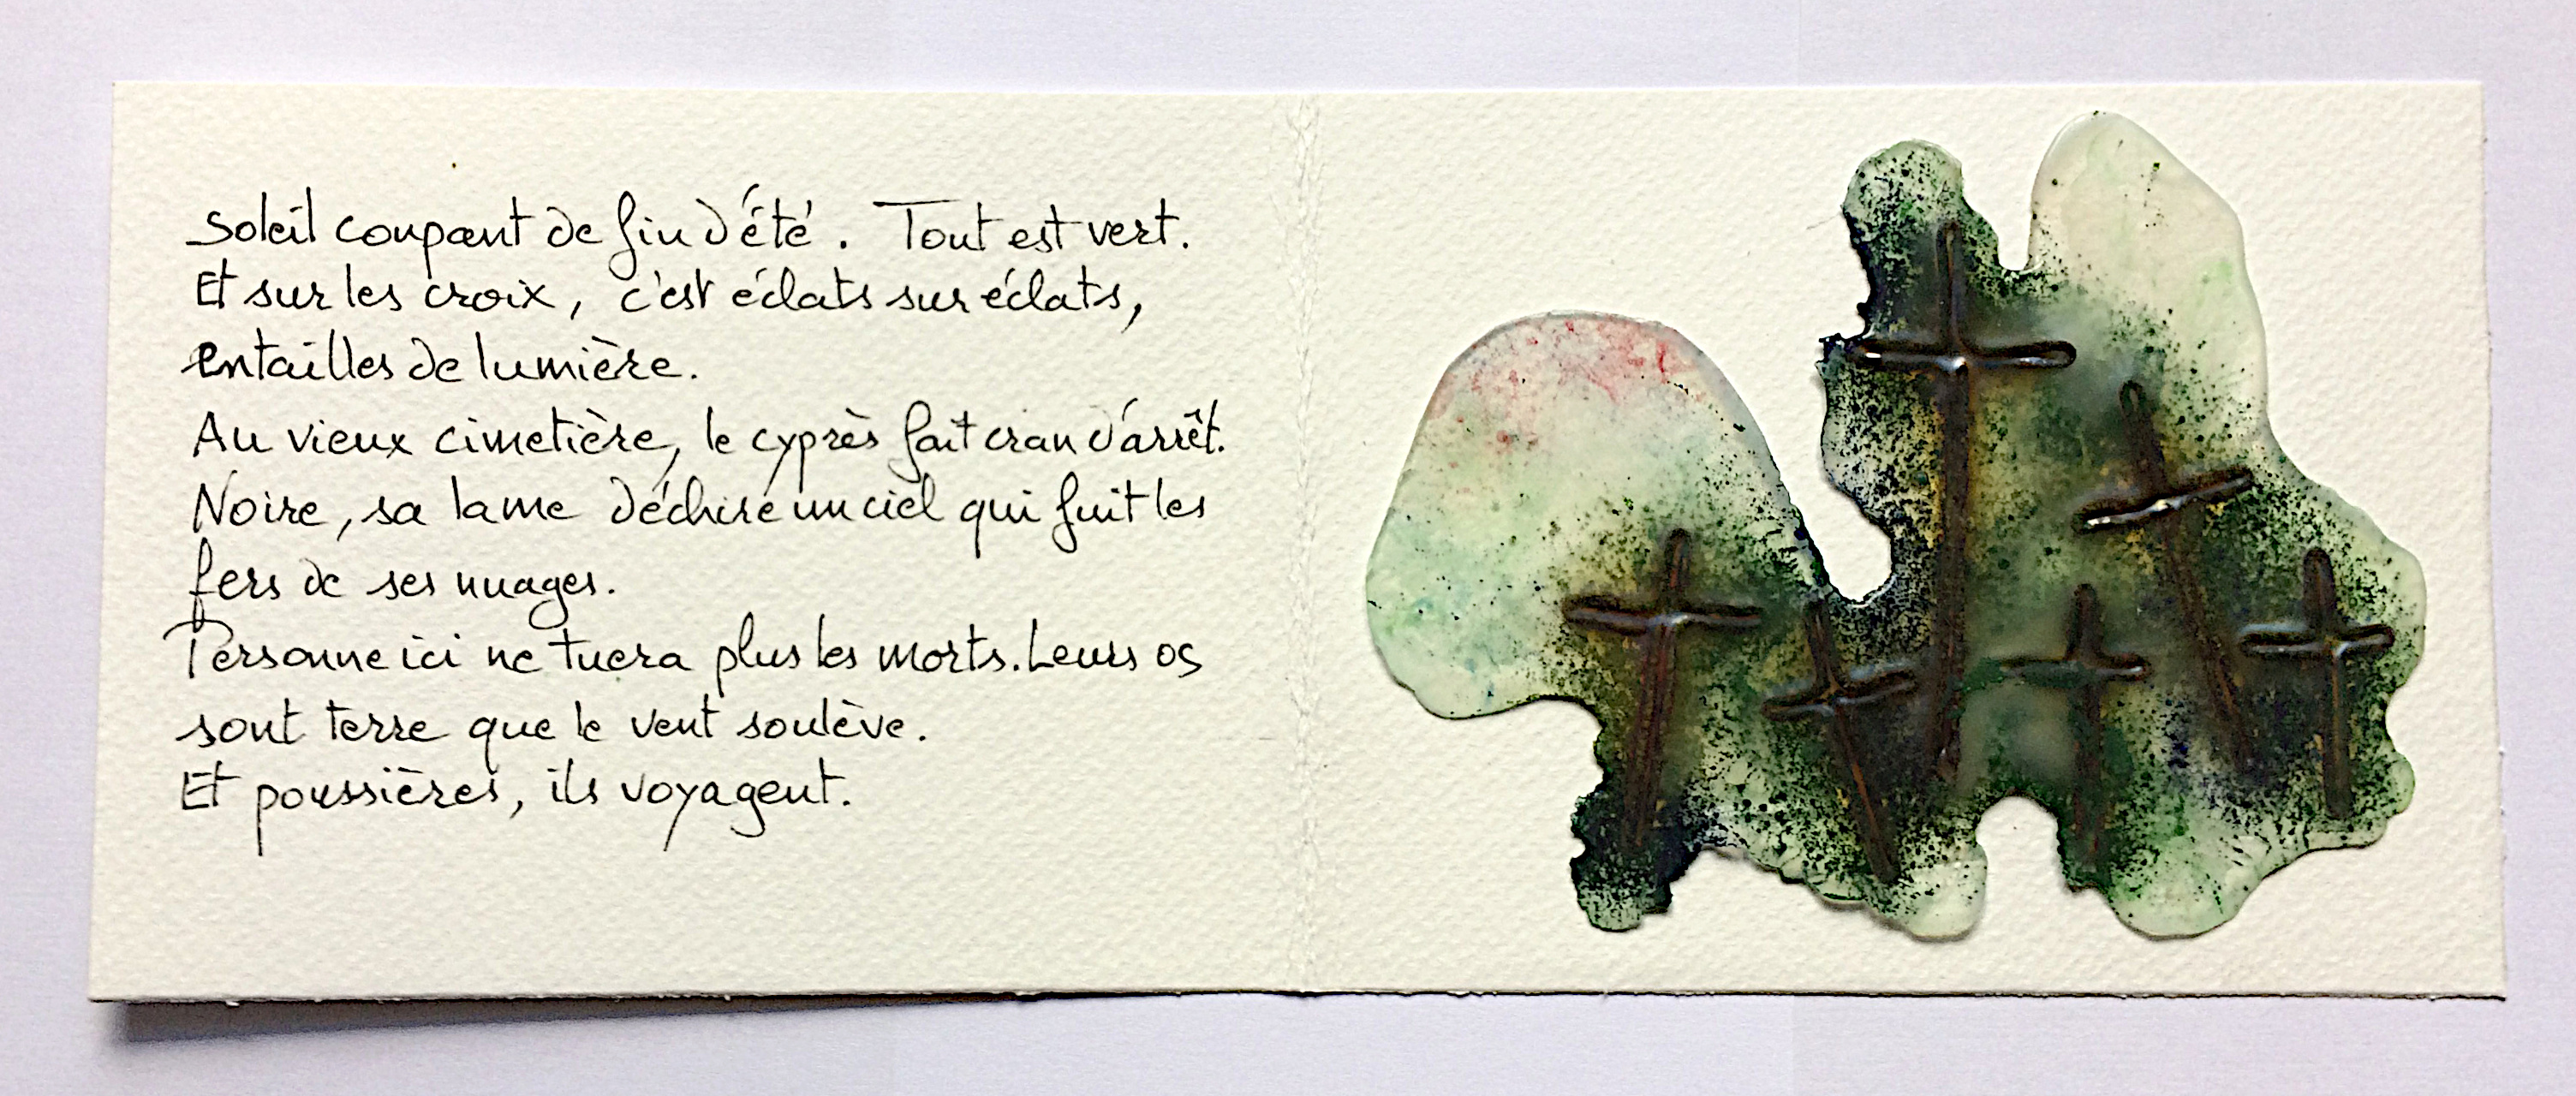 Soleil coupant de fin d'été. Tout est vert.
Et sur les croix, c'est éclats sur éclats,
entailles de lumière.
Au vieux cimetière, le cyprès fait cran d'arrêt.
Noire, sa lame déchire un ciel qui fuit les
fers de ses nuages.
Personne ici ne tuera plus les morts. Leurs os
sont terre que le vent soulève.
Et poussières, ils voyagent.